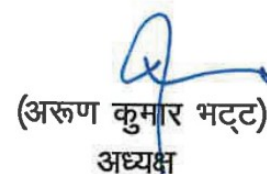 (अरूण कुमार भट्ट)
अध्यक्ष